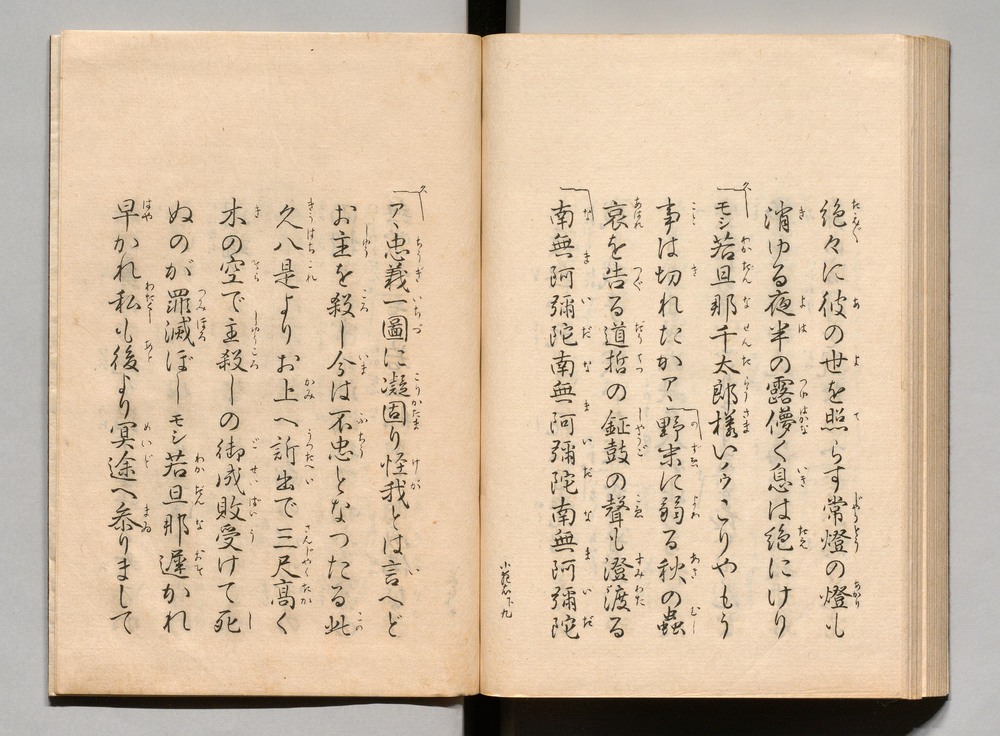 絶々に彼の世を照らす常燈の燈も
消ゆる夜半の露儚く息は絶にけり
モシ若旦那千太郎様いノウこりやもう
事は切れたかアヽ野末に弱る秋の蟲
哀を告る道哲の鉦鼓の聲も澄渡る
南無阿彌陀南無阿彌陀南無阿彌陀
アヽ忠義一圖に凝固り怪我とは言へど
お主を殺し今は不忠となつたる此
久八是よりお上へ訴出で三尺高く
木の空で主殺しの御成敗受けて死
ぬのが罪滅ぼし モシ若旦那遲かれ
早かれ私も後より冥途へ參りまして